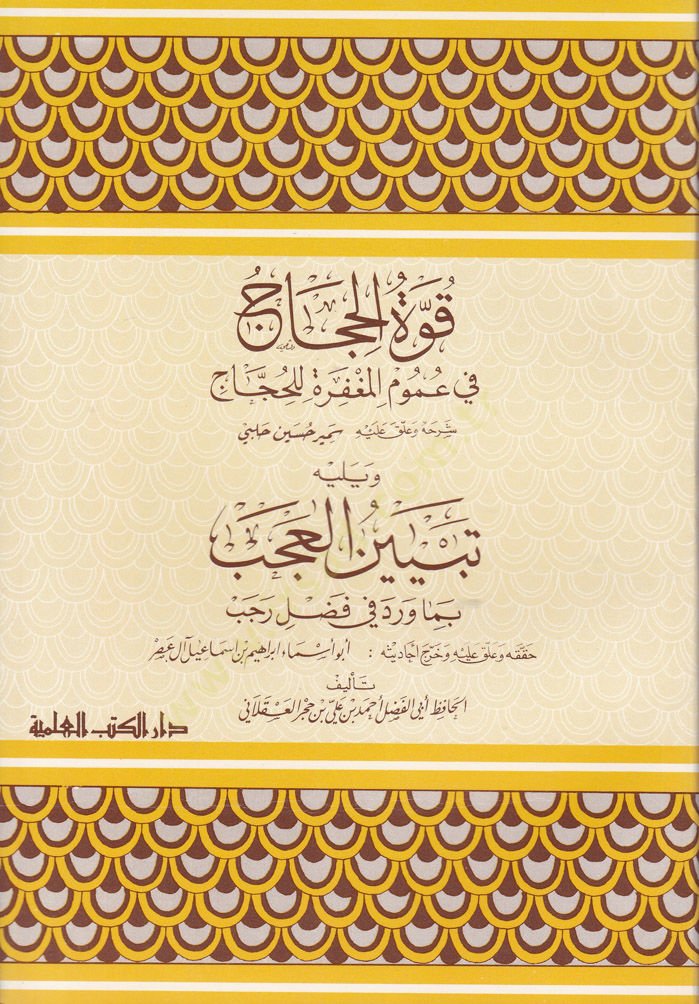 قُوَّةُ الحِجَاجُ
في عُمُومِ المَغْفِرَةِ لِلحُجَّاجِ
شَرَحَهُ وَعَلَّقَ عَلَيْهِ سمير حُسَين حلبي
وَيَليه
تَبْيِينُ العَجَبْ
بِمَا وَرَدَ في فَضْلِ رَجَبْ
حَقَّقَه وَعَلَّقَ عَلَيْهِ وَخَرَّجَ أحَاديثه : أبو أسْمَاء ابراهيم بن اسماعيل آل عصر
تأليف
الحَافِظ أبي الفَضل أحمد بن عَليّ بن حجر العَسْقَلاني
دار الكتب العلمية